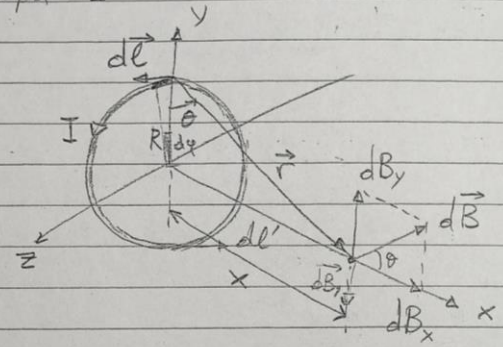 y
dl⃗
θ
I
R
dφ
r⃗
dB_y
dB⃗
z
dl'
x
θ
dB⃗₁
dB_x
x